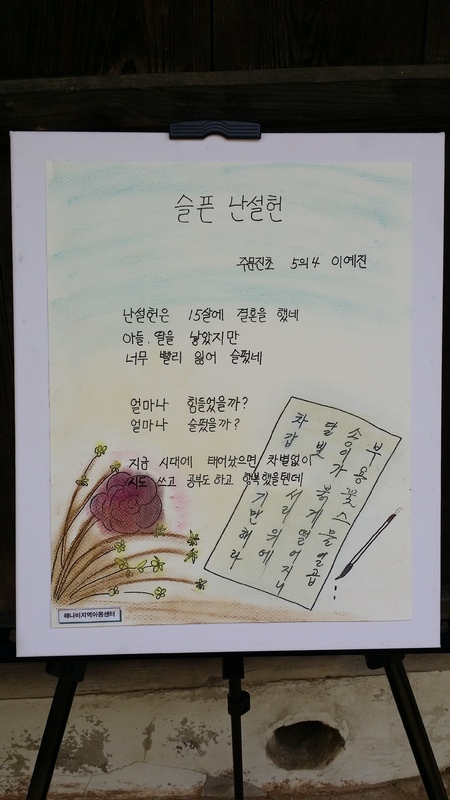 슬픈 난설헌
주문진초 5의4 이예진
난설헌은 15살에 결혼을 했네
아들, 딸을 낳았지만
너무 빨리 잃어 슬펐네
얼마나 힘들었을까?
얼마나 슬펐을까?
지금 시대에 태어났으면 차별없이
시도 쓰고 공부도 하고 행복했을텐데
부용꽃스물일곱
송이가 붉게 떨어지니
달빛 서리 위에
차갑기만해라
해나비지역아동센터